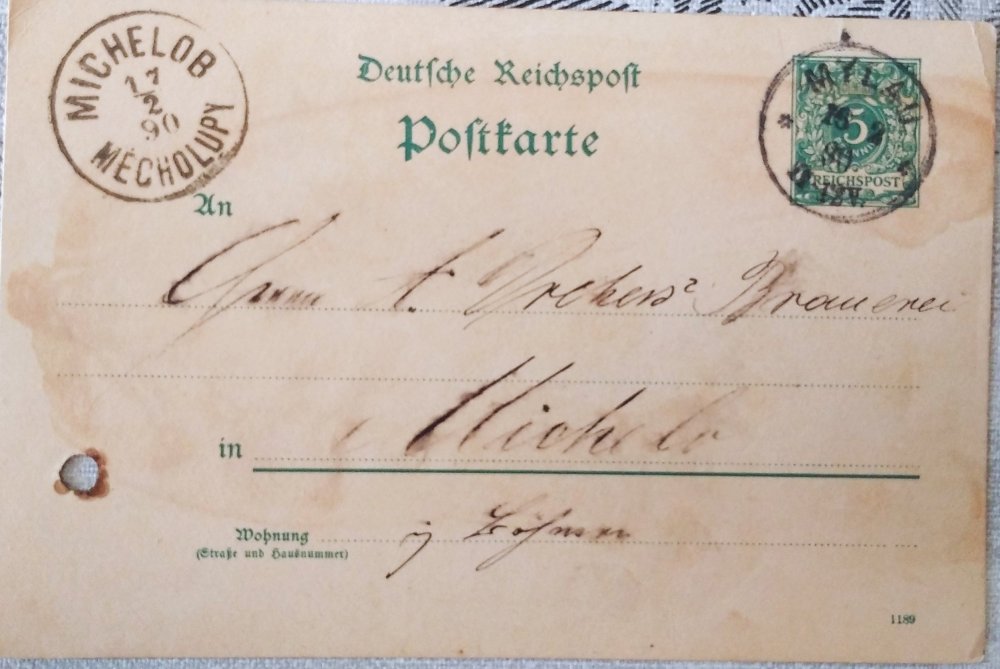 MICHELOB
17
2
90
MĚCHOLUPY
Deutsche Reichspost
Postkarte
MYLAU
5
REICHSPOST
12V.
An
Herrn A. Drehers Brauerei
in Michelob
Wohnung
(Straße und Hausnummer)
Böhmen
1189